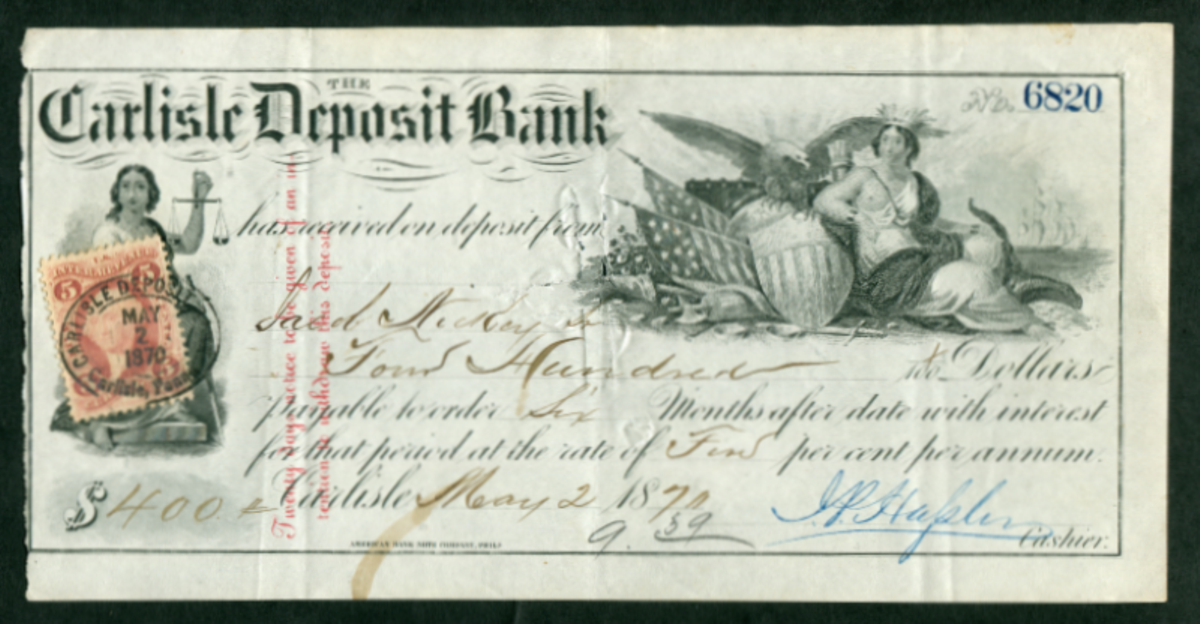 THE
Carlisle Deposit Bank
No. 6820
has received on deposit from
Four Hundred Dollars
payable to order Six Months after date with interest
for that period at the rate of Five per cent per annum.
$400 Carlisle May 2 1870
9.59
Cashier.
AMERICAN BANK NOTE COMPANY, PHILA
Twenty days notice to be given of an in
tention to withdraw this deposit
U.S.
INTER. REVENUE
5 5
CARLISLE DEPOSIT
MAY
2
1870
Carlisle, Penn